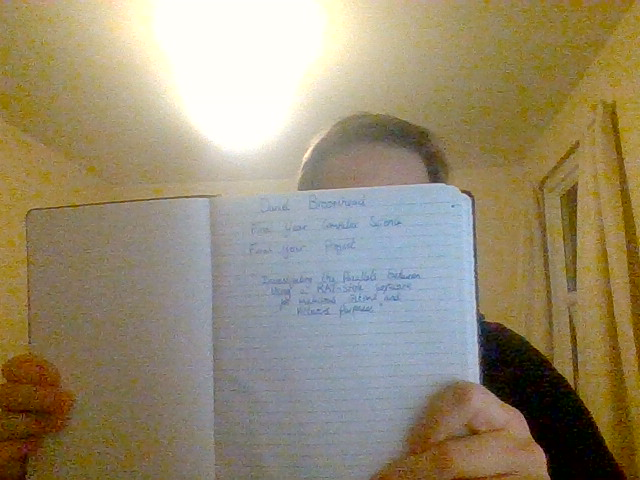 David Broomhead
Final Year Computer Science
Final Year Project
Investigating the Parallels Between
Using a RAT-Style software
for numerous actions and
Malicious Purposes